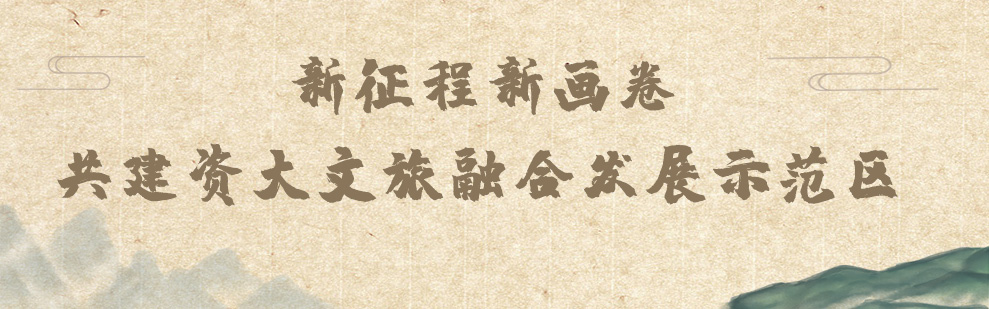 新征程新画卷
共建资大文旅融合发展示范区